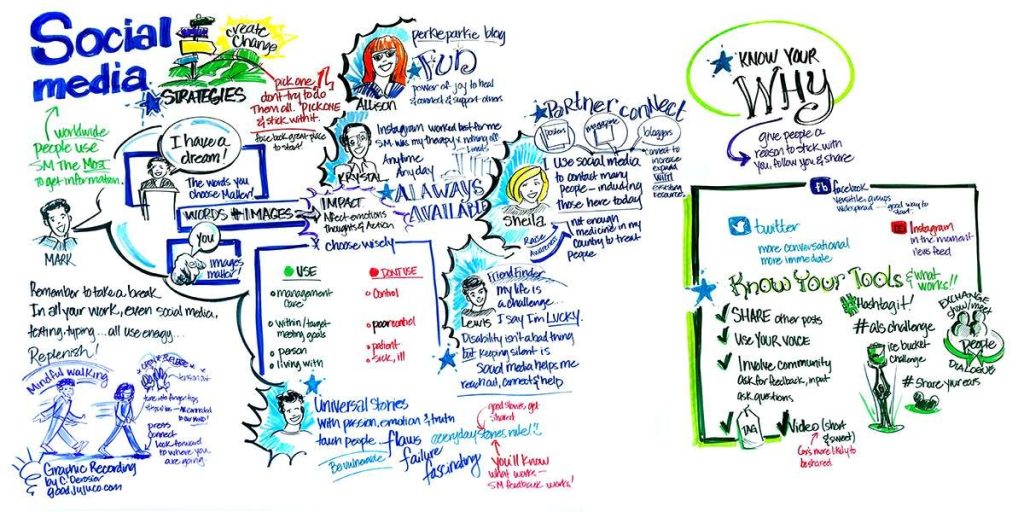 Social
media
STRATEGIES
create
change
pick one
don't try to do
Them all. PICK ONE
& stick with it.
facebook great place
to start!
worldwide
people use
SM The Most
to get information.
MARK
I have a
dream!
The words you
choose Matter!
WORDS # IMAGES
You
Images
matter!
IMPACT
Affect emotions
Thoughts & Action
Remember to take a break
In all your work, even social media,
texting, typing... all use energy...
Replenish!
Mindful walking
press
connect
look forward
to where you
are going
Graphic Recording
by C. Derosier
goodjujuco.com
perkieparkie blog
FUN
power of joy to heal
& connect & support others
Allison
Instagram worked best for me
SM was my therapy & nothing off
limits
Anytime
Any day
KRYSTAL
ALAWAYS
AVAILABLE
Partner connect
magazine
bloggers
connect to
increase
expand
with
existing
resources.
I use social media
to contact many
people - including
those here today
Sheila
Raise
Awareness
not enough
medicine in my
country to treat
people
choose wisely
USE
management
care
within/target
meeting goals
person
living with
DON'T USE
control
poor control
patient
sick, ill
Friend Finder
my life is
a challenge...
I say I'm LUCKY.
Lewis
Disability isn't a bad thing
but keeping silent is
Social media helps me
reach out, connect & help
Universal Stories
with passion, emotion & truth
taum people
Be vulnerable
flaws
failure
fascinating
good stories get
shared
everyday stories rule!!
You'll know
what works -
SM feedback works!
KNOW YOUR
WHY
give people a
reason to stick with
you, follow you & share
fb facebook
versatile, groups
widespread - good way to
start
twitter
more conversational
more immediate
Instagram
In the moment
news feed
Know Your Tools & what
works!!
SHARE other posts
USE YOUR VOICE
Involve community
Ask for feedback, input
ask questions
TAG
Video (short
& sweet)
Gis more likely to
be shared
# Hashtag it!
#als challenge
ice bucket
challenge
# Share your ears
EXCHANGE
show/meet
People
DIALOGUE